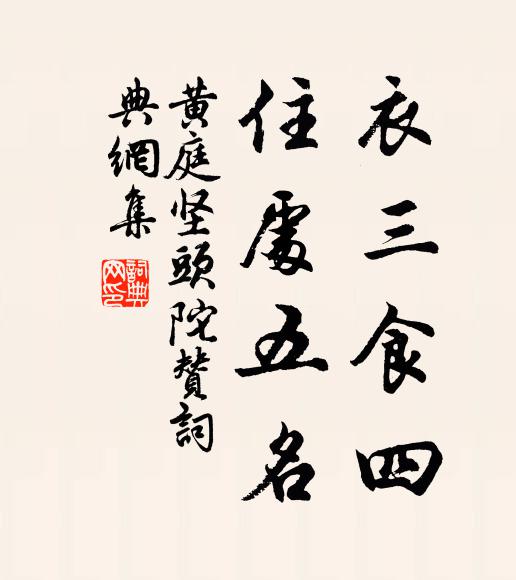 衣三食四
住處五名
黃庭坚頭陀贊詞
典網集
詞典網印